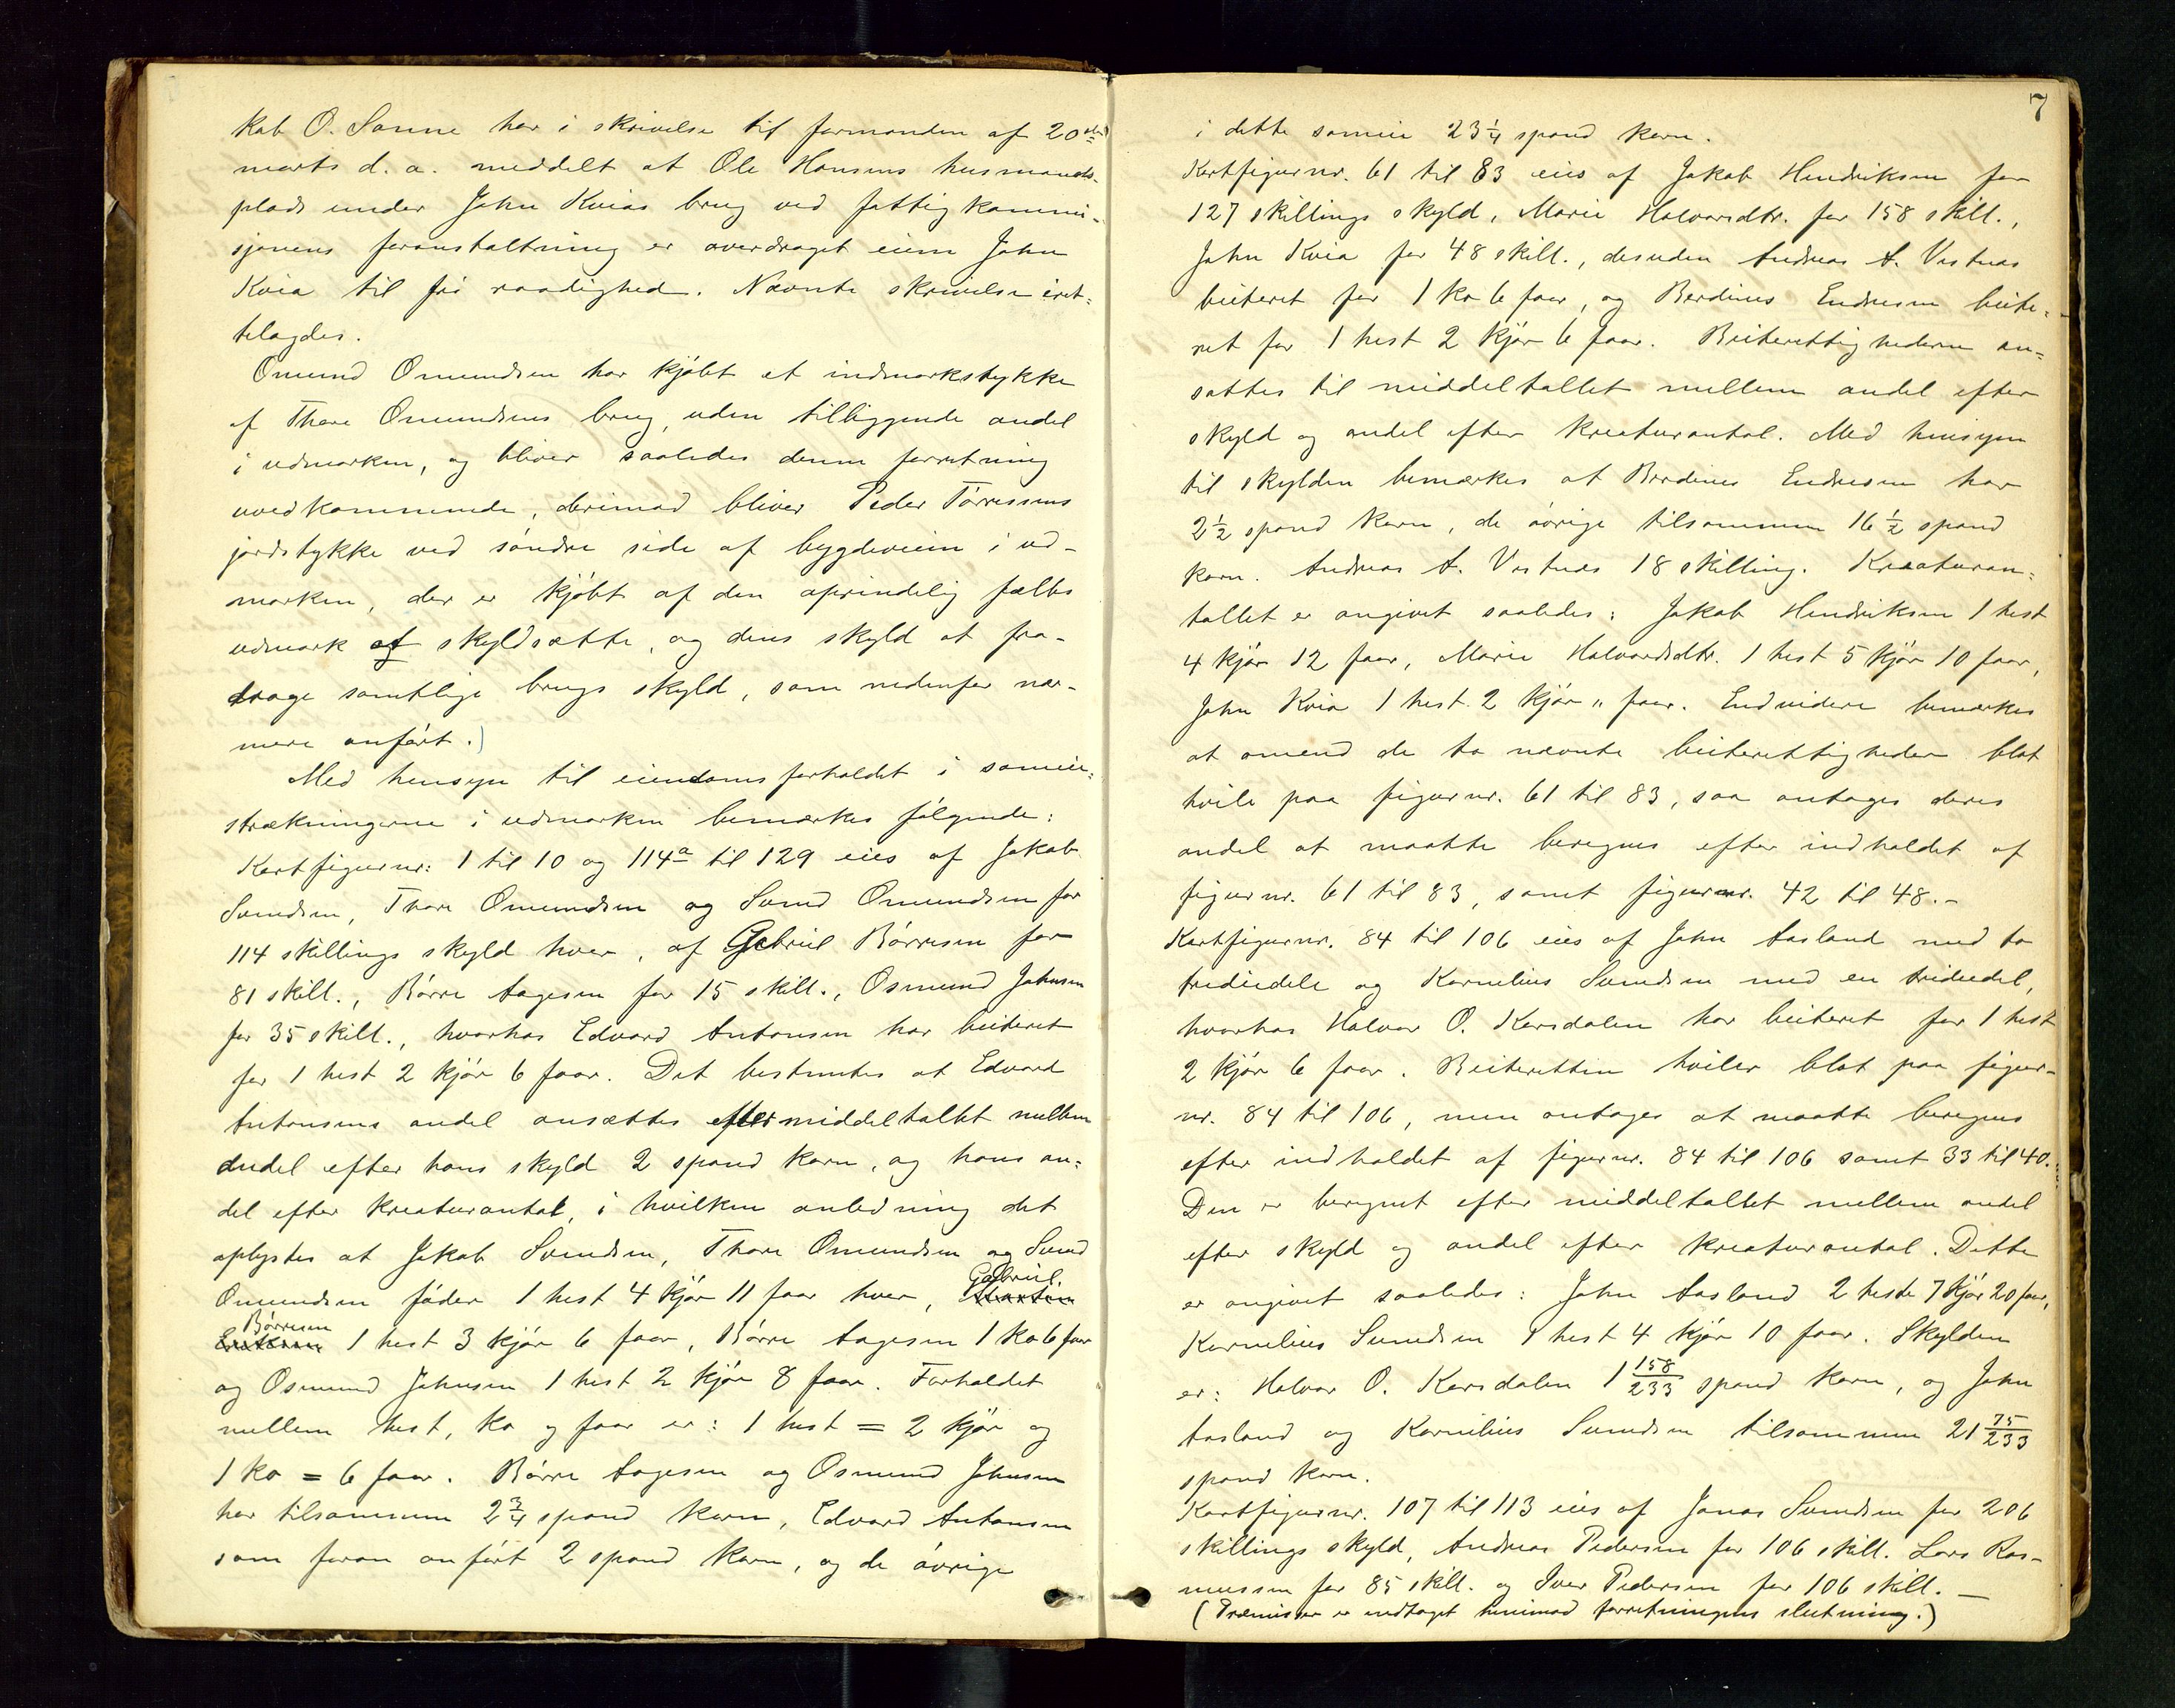 kab O. Sanne har i skrivelse til formanden af 20de
marts d. a. meddelt at Ole Hansens husmands-
plads under John Kvias brug ved fattigkommi-
sjonens foranstaltning er overdraget eieren John
Kvia til fri raadighed. Nævnte skrivelse iret-
telagdes.
Omund Omundsen har kjøbt et indmarkstykke
af Thore Omundsens brug, uden tilliggende andel
i udmarken, og bliver saaledes denne forretning
uvedkommende, derimod bliver Peder Tørresens
jordstykke ved søndre side af bygdeveien i ud-
marken, der er kjøbt af den oprindelig fælles
udmark at skyldsætte, og dens skyld at fra-
drage samtlige brugs skyld, som nedenfor nær-
mere anført.)
Med hensyn til eiendomsforholdet i sameie-
strækningerne i udmarken bemærkes følgende:
Kartfigurnr: 1 til 10 og 114a til 129 eies af Jakob
Svendsen, Thore Omundsen og Svend Omundsen for
114 skillings skyld hver, af Gabriel Børresen for
81 skill., Børre Aagesen for 15 skill., Osmund Johnsen
for 35 skill., hvorhos Edvard Antonsen har beiteret
for 1 hest 2 kjør 6 faar. Det bestemtes at Edvard
Antonsens andel ansættes efter middeltallet mellem
andel efter hans skyld 2 spand korn, og hans an-
del efter kreaturantal, i hvilken anledning det
oplystes at Jakob Svendsen, Thore Omundsen og Svend
Omundsen føder 1 hest 4 kjør 11 faar hver, Gabriel
Børresen 1 hest 3 kjør 6 faar, Børre Aagesen 1 ko 6 faar
og Osmund Johnsen 1 hest 2 kjør 8 faar. Forholdet
mellem hest, ko og faar er: 1 hest = 2 kjør og
1 ko = 6 faar. Børre Aagesen og Osmund Johnsen
har tilsammen 2 3/4 spand korn, Edvard Antonsen
som foran anført 2 spand korn, og de øvrige
7
i dette sameie 23 1/4 spand korn.
Kartfigurnr. 61 til 83 eies af Jakob Hendriksen for
127 skillings skyld, Marie Halvorsdtr. for 158 skill.,
John Kvia for 48 skill., desuden Andreas A. Vestnes
beiteret for 1 ko 6 faar, og Berdines Endresen beite-
ret for 1 hest 2 kjør 6 faar. Beiterettighederne an-
sættes til middeltallet mellem andel efter
skyld og andel efter kreaturantal. Med hensyn
til skylden bemærkes at Berdines Endresen har
2 1/2 spand korn, de øvrige tilsammen 16 1/2 spand
korn. Andreas A. Vestnes 18 skilling. Kreaturan-
tallet er angivet saaledes: Jakob Hendriksen 1 hest
4 kjør 12 faar, Marie Halvordsdtr. 1 hest 5 kjør 10 faar,
John Kvia 1 hest 2 kjør " faar. Endvidere bemærkes
at omend de to nævnte beiterettigheder blot
hvile paa figurnr. 61 til 83, saa antages deres
andel at maatte beregnes efter indholdet af
figurnr. 61 til 83, samt figurnr. 42 til 48.-
Kartfigurnr. 84 til 106 eies af John Aasland med to
trediedele og Kornelius Svendsen med en trediedel,
hvorhos Halvor O. Kersdalen har beiteret for 1 hest
2 kjør 6 faar. Beiteretten hviler blot paa figur-
nr. 84 til 106, men antages at maatte beregnes
efter indholdet af figurnr. 84 til 106 samt 33 til 40.
Den er beregnet efter middeltallet mellem andel
efter skyld og andel efter kreaturantal. Dette
er angivet saaledes: John Aasland 2 heste 7 kjør 20 faar,
Kornelius Svendsen 1 hest 4 kjør 10 faar. Skylden
er: Halvor O. Kersdalen 1 158/233 spand korn, og John
Aasland og Kornelius Svendsen tilsammen 21 75/233
spand korn.
Kartfigurnr. 107 til 113 eies af Jonas Svendsen for 206
skillings skyld, Andreas Pedersen for 106 skill. Lars Ras-
mussen for 85 skill. og Iver Pedersen for 106 skill. —
(Præmisser er indtaget henimod forretningens slutning.)